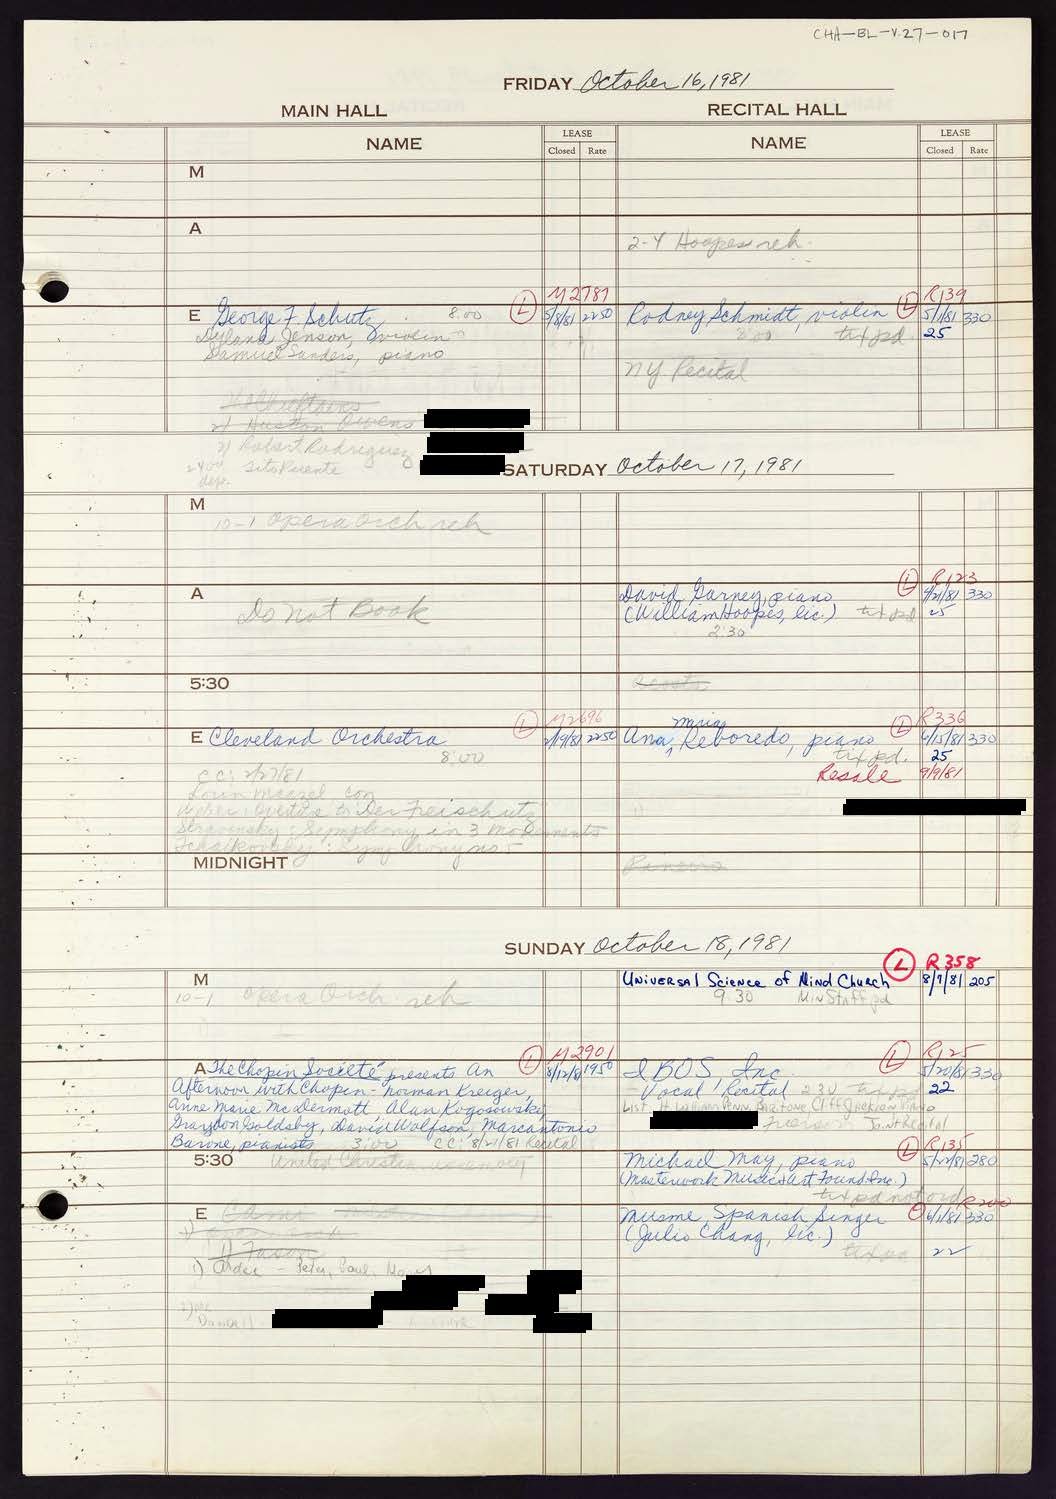 CHA-BL-V.27-017
FRIDAY October 16, 1981
MAIN HALL RECITAL HALL
NAME LEASE NAME LEASE
Closed Rate Closed Rate
M
A
2-4 Hoopes reh.
M2787 R139
E George F. Schutz 8:00 L 5/8/81 2250 Rodney Schmidt, violin L 5/1/81 330
Dylana Jenson, violin 8:00 tix pd. 25
Samuel Sanders, piano
NY Recital
The Chieftains
2) Huston Owens
2) Robert Rodriguez
2400 Sito Parente
dep.
SATURDAY October 17, 1981
M
10-1 Opera Orch reh
A Do Not Book
L R123
David Garney, piano 4/21/81 330
(William Hoopes, lic.) tix pd 25
2:30
5:30
L M2696 L R336
E Cleveland Orchestra 2/19/81 2250 Ana Maria Reboredo, piano 6/15/81 330
8:00 tix pd. 25
Resale 9/9/81
CC: 2/27/81
Lorin Maazel, con
Weber: Overture to Der Freischutz
Stravinsky: Symphony in 3 Movements
Tchaikovsky: Symphony no 5
MIDNIGHT
SUNDAY October 18, 1981
L R358
M Universal Science of Mind Church 8/7/81 205
10-1 Opera Orch. reh 9:30 Min Staff pd
L M2901 L R125
A The Chopin Société presents An 8/12/81 1950 IBOS, Inc 5/20/81 330
Afternoon with Chopin - Norman Kreiger, Vocal Recital 2:30 tix pd 22
Anne Marie McDermott, Alan Kogosowski, List: H William Penn, Baritone, Cliff Jackson Piano
Graydon Goldsby, David Wolfson, Marcantonio Joint Recital
Barone, pianists 3:00 CC: 8/27/81 Recital
L R135
5:30 United Christian Michael May, piano 5/22/81 280
(Masterwork Music & Art Found. Inc.)
tix pd not ord R200
E Musme, Spanish Singer 6/1/81 330
(Julio Chang, lic.) 22
1) Ardee - Peter, Paul, Mary